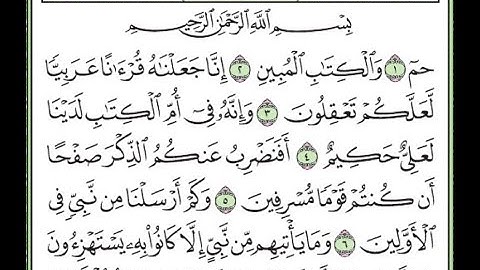 بِسْمِ ٱللَّهِ ٱلرَّحْمَٰنِ ٱلرَّحِيمِ
حمٓ ١ وَٱلْكِتَٰبِ ٱلْمُبِينِ ٢ إِنَّا جَعَلْنَٰهُ قُرْءَٰنًا عَرَبِيًّا
لَّعَلَّكُمْ تَعْقِلُونَ ٣ وَإِنَّهُۥ فِىٓ أُمِّ ٱلْكِتَٰبِ لَدَيْنَا
لَعَلِىٌّ حَكِيمٌ ٤ أَفَنَضْرِبُ عَنكُمُ ٱلذِّكْرَ صَفْحًا
أَن كُنتُمْ قَوْمًا مُّسْرِفِينَ ٥ وَكَمْ أَرْسَلْنَا مِن نَّبِىٍّ فِى
ٱلْأَوَّلِينَ ٦ وَمَا يَأْتِيهِم مِّن نَّبِىٍّ إِلَّا كَانُوا۟ بِهِۦ يَسْتَهْزِءُونَ